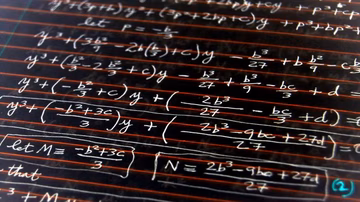 let p = -b/3
y³ + (3b²/9 - 2b(b/3) + c)y - b³/27 + b b²/9 - c b
y³ + (b²/3 - 2b²/3 + c)y - b³/27 + b³/9 - bc/3 + d
y³ + (-b²/3 + c)y + (2b³/27 - bc/3 + d) =
y³ + (-b²+3c/3)y + (2b³-9bc+27d/27) =
let M = -b²+3c/3 N = 2b³-9bc+27d/27
that
³ + M (2)